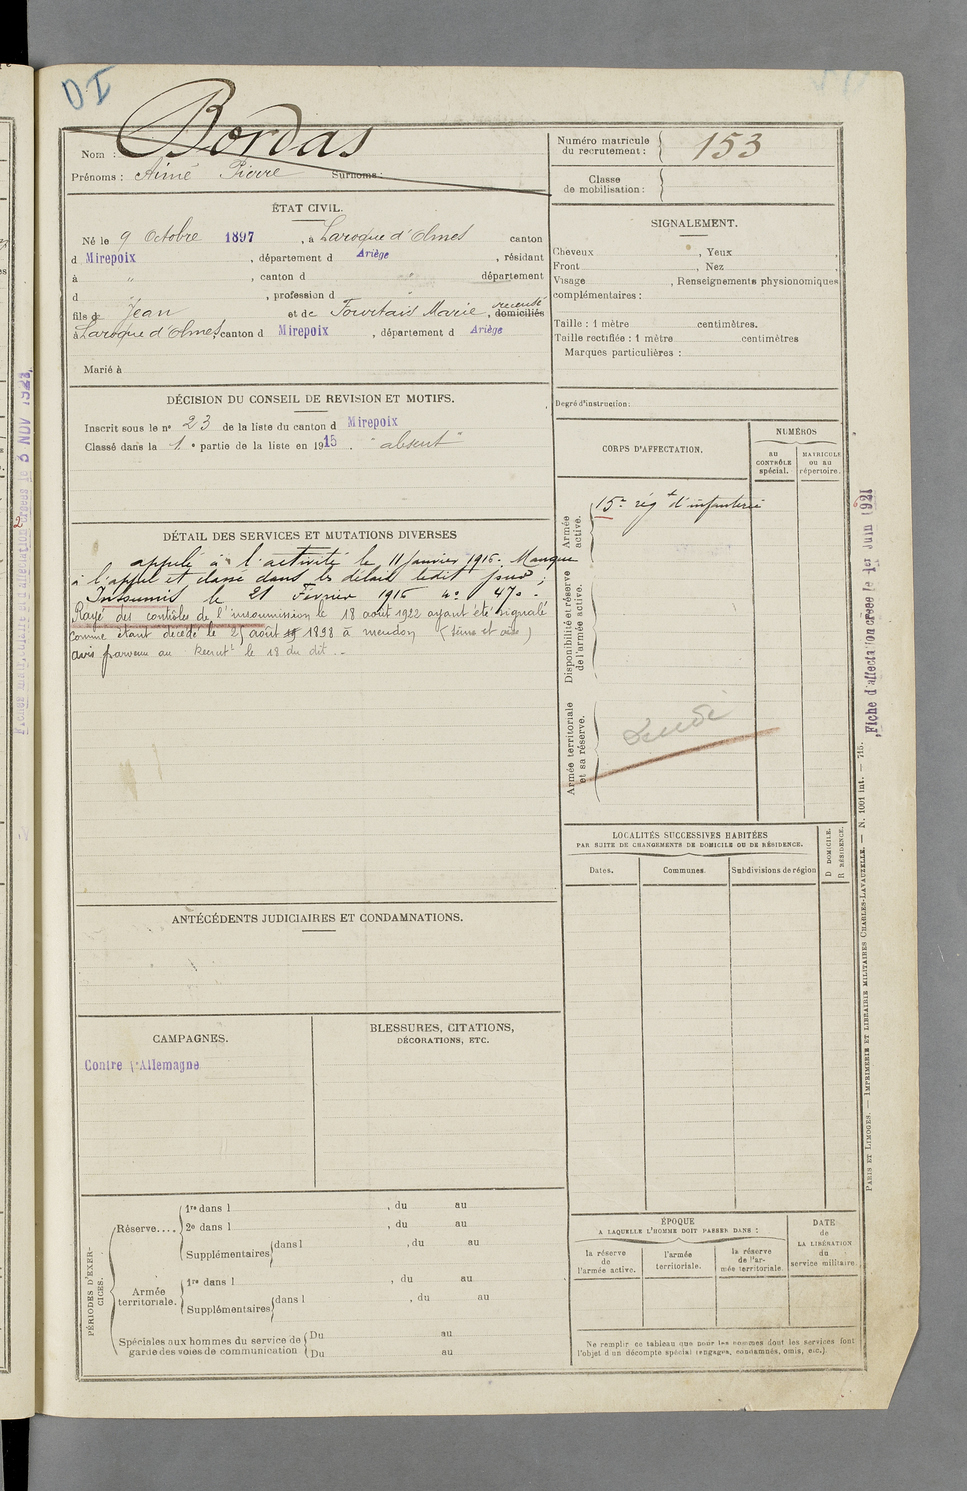 OI
Nom : Bordas
Prénoms : Aimé Pierre Surnoms :
Numéro matricule du recrutement : 153
Classe de mobilisation :
ÉTAT CIVIL.
Né le 9 Octobre 1897, à Laroque d'Olmes canton
d Mirepoix, département d Ariège, résidant
à ", canton d " département
d , profession d "
fils de Jean et de Marie, recensé domiciliés
à Laroque d'Olmes, canton d Mirepoix, département d Ariège
Marié à
SIGNALEMENT.
Cheveux , Yeux
Front , Nez
Visage , Renseignements physionomiques
complémentaires :
Taille : 1 mètre centimètres.
Taille rectifiée : 1 mètre centimètres
Marques particulières :
Degré d'instruction :
DÉCISION DU CONSEIL DE REVISION ET MOTIFS.
Inscrit sous le n° 23 de la liste du canton d Mirepoix
Classé dans la 1e partie de la liste en 1915. "absent"
DÉTAIL DES SERVICES ET MUTATIONS DIVERSES
appelé à l'activité le 11 Janvier 1916. Manque
à l'appel et classé dans les délais ledit jour ;
Insoumis le 21 Février 1916 n° 470.
Rayé des contrôles de l'insoumission le 18 août 1922 ayant été signalé
comme étant décédé le 25 août 1898 à meudon (seine et oise)
avis parvenu au Recrutt le 18 du dit.
CORPS D'AFFECTATION.
NUMÉROS
AU CONTRÔLE spécial.
MATRICULE OU AU répertoire.
Armée active.
15e régt d'infanterie
Disponibilité et réserve de l'armée active.
Armée territoriale et sa réserve.
Décédé
LOCALITÉS SUCCESSIVES HABITÉES
PAR SUITE DE CHANGEMENTS DE DOMICILE OU DE RÉSIDENCE.
Dates.
Communes.
Subdivisions de région
D DOMICILE.
R RÉSIDENCE.
ANTÉCÉDENTS JUDICIAIRES ET CONDAMNATIONS.
CAMPAGNES.
Contre l'Allemagne
BLESSURES, CITATIONS,
DÉCORATIONS, ETC.
PÉRIODES D'EXERCICES.
Réserve....
1re dans l , du au
2e dans l , du au
Supplémentaires dans l , du au
Armée territoriale.
1re dans l , du au
Supplémentaires dans l , du au
Spéciales aux hommes du service de garde des voies de communication
Du au
Du au
ÉPOQUE
A LAQUELLE L'HOMME DOIT PASSER DANS :
la réserve de l'armée active.
l'armée territoriale.
la réserve de l'armée territoriale.
DATE
de
LA LIBÉRATION
du
service militaire.
Ne remplir ce tableau que pour les hommes dont les services font
l'objet d'un décompte spécial (engagés, condamnés, omis, etc.).
Fiche d'affectation créée le 1er Juin 1921
PARIS ET LIMOGES. — IMPRIMERIE ET LIBRAIRIE MILITAIRES CHARLES-LAVAUZELLE. — N. 1001 int. — 715.